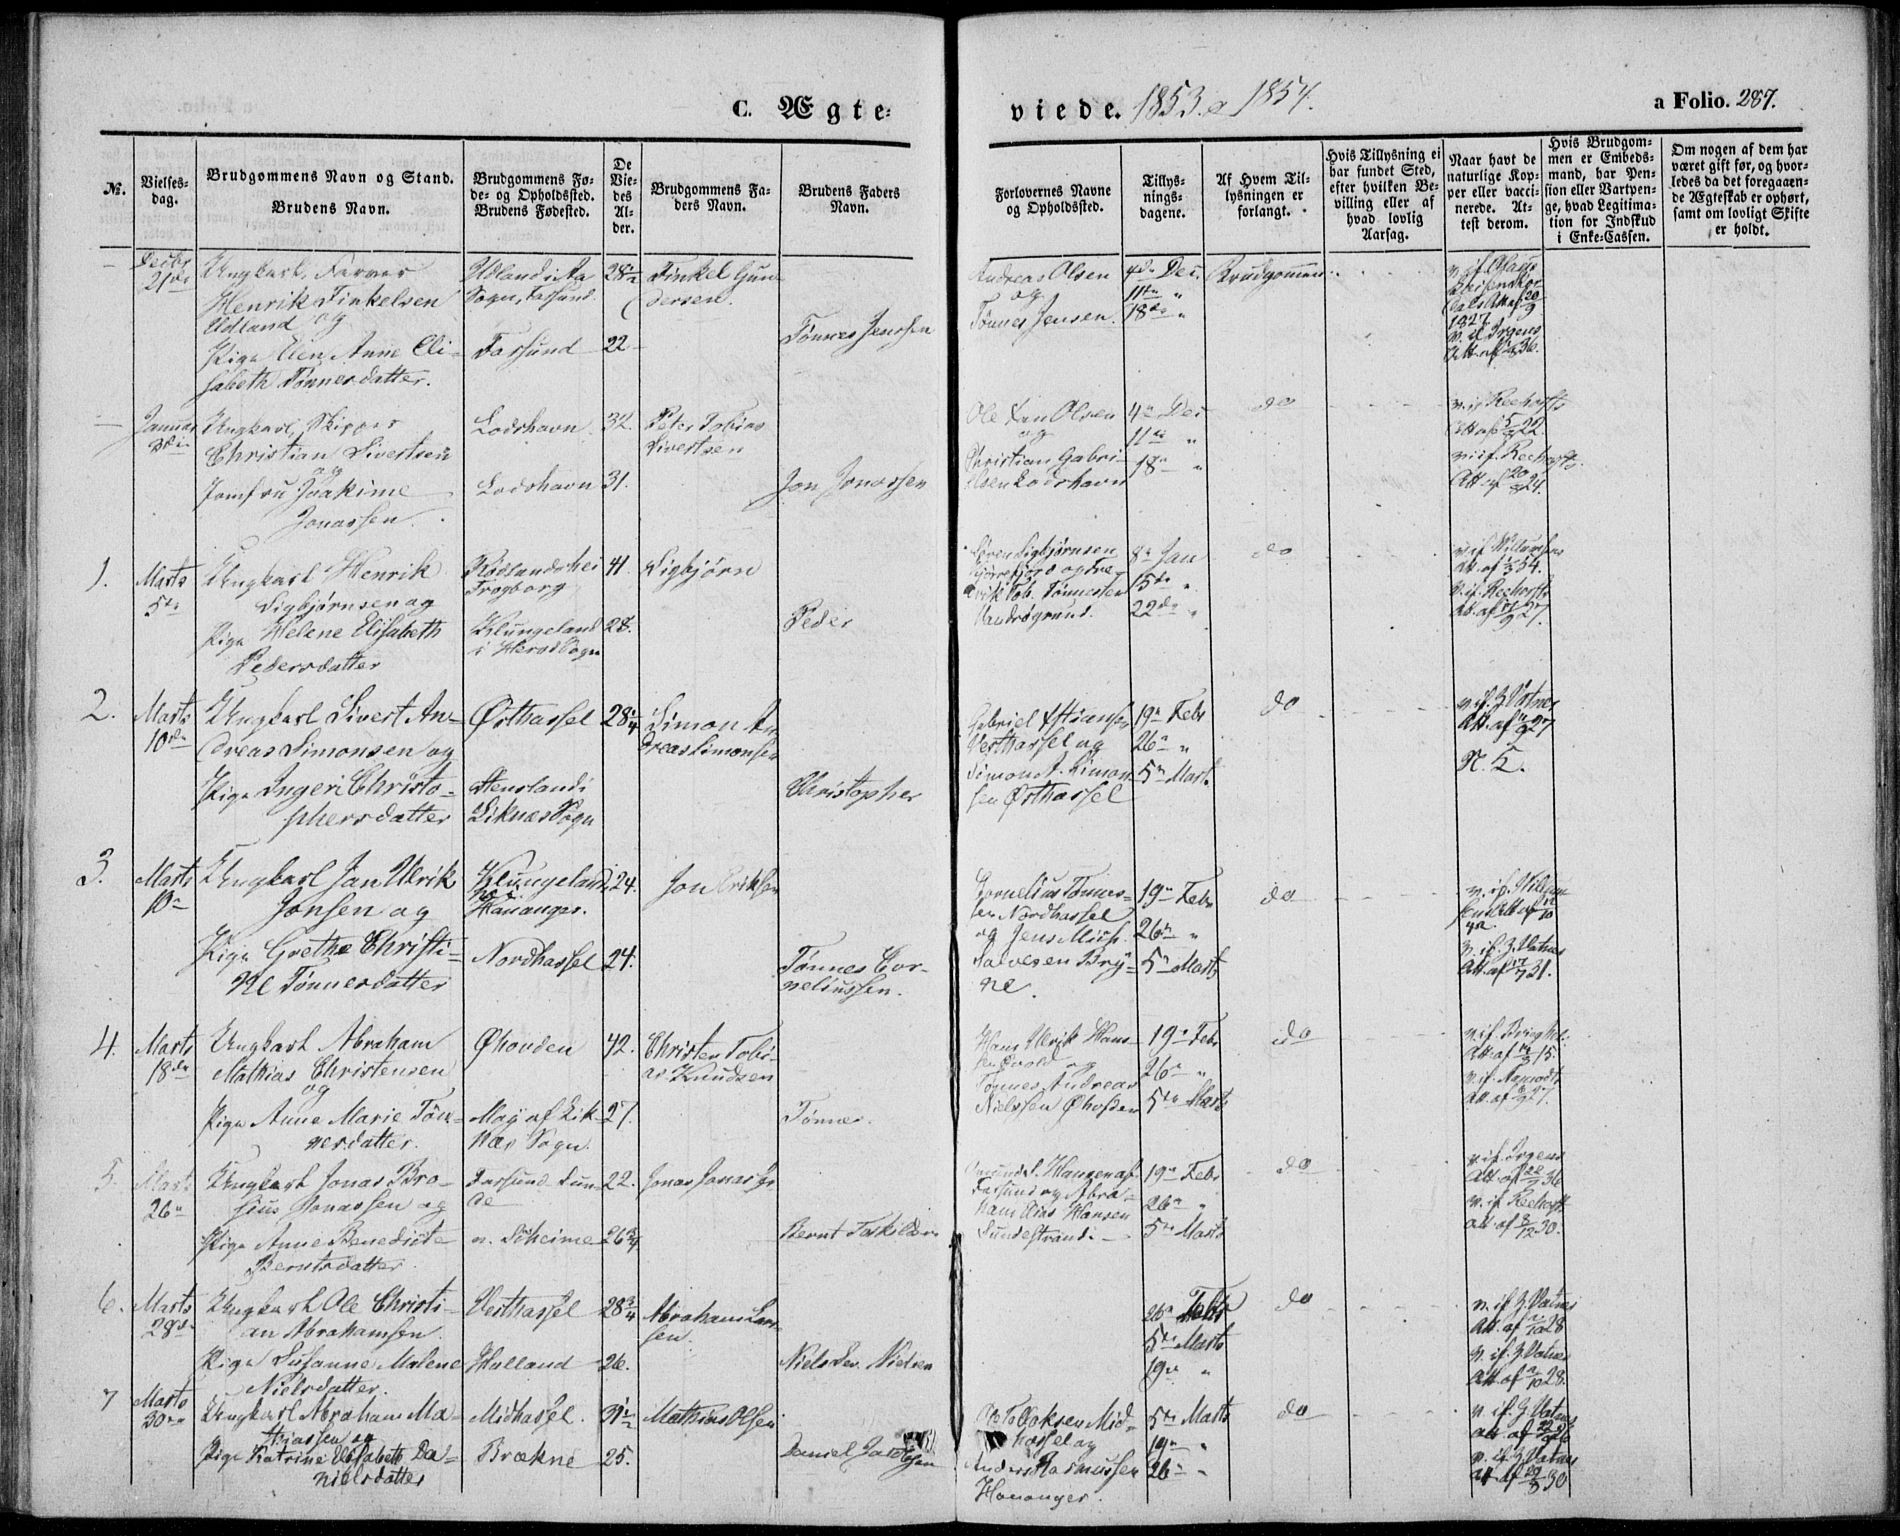 C. Ægte-
viede. 1853 & 1854.
a Folio. 287.
№.
Vielses-
dag.
Brudgommens Navn og Stand.
Brudens Navn.
Brudgommens Fø-
de- og Opholdssted.
Brudens Fødested.
De
Vie-
des
Al-
der.
Brudgommens Fa-
ders Navn.
Brudens Faders
Navn.
Forlovernes Navne
og Opholdssted.
Tillys-
nings-
dagene.
Af Hvem Til-
lysningen er
forlangt.
Hvis Tillysning ei
har fundet Sted,
efter hvilken Be-
villing eller af
hvad lovlig
Aarsag.
Naar havt de
naturlige Kop-
per eller vacci-
nerede. At-
test derom.
Hvis Brudgom-
men er Embeds-
mand, har Pen-
sion eller Vartpen-
ge, hvad Legitima-
tion for Indskud
i Enke-Cassen.
Om nogen af dem har
været gift før, og hvor-
ledes da det foregaaen-
de Ægteskab er ophørt,
samt om lovligt Skifte
er holdt.
Decbr
21de
Ungkarl, Farver
Henrik Finkelsen
Udland og
Pige Elen Anne Eli-
sabeth Tønnesdatter.
Udland i
Sogn, Farsund.
Farsund
28½
22
Finkel Gun-
dersen.
Tønnes Jenssen
Andreas Olsen
og
Tønnes Jensen.
4de Dec.
11te "
18de "
Brudgommen
1827
Att. af 36.
Januar
3die
Ungkarl, Skipper
Christian Sivertsen
og
Jomfru Joakime
Jonassen.
Lodshavn
Lodshavn
32.
31.
Peter Tobias
Sivertsen
Jon Jonassen
Ole Olsen
og
Christian Gabri-
elsen Lodshavn
4de Dec
11te "
18de "
do
v. if. Reehorsts
Att. af 22.
v. if. Reehorsts
Att. af 20 24.
1.
Marts
5te
Ungkarl Henrik
Sigbjørnsen og
Pige Helene Elisabeth
Pedersdatter
Rødlandshei
Klungeland
i Herad Sogn
41.
28.
Sigbjørn
Peder
Søren Sigbjørnsen
og Fre-
drik Tob. Tønnessen
8de Jan
15de "
22de "
do
v. if.
Att. af 54.
v. if. Reehorsts
Att. af 27.
2.
Marts
10de
Ungkarl Sivert An-
dreas Simonsen og
Pige Ingeri Christo-
phersdatter
Østhassel
Stensland i
Liknæs Sogn
28¼
Simon An-
dreas Simonsen
Christopher
Gabriel
Vesthassel og
Simon A. Simon-
sen Østhassel
19de Febr
26de "
5te Marts
do
v. if. Z. Vatnes
Att. af 27
N. 5.
3.
Marts
10de
Ungkarl Jan Ulrik
Jonsen og
Pige Grethe Christi-
ne Tønnesdatter
Klungeland
Hananger.
Nordhassel
24.
24.
Jon Eriksen
Tønnes Cor-
neliussen.
Cornelius Tønnes-
sen Nordhassel
og Jens Mich.
Salvesen Bry-
ne.
19de Febr
26de "
5te Marts
do
v. if.
v. if. Z. Vatnes
Att. af 17 31.
4.
Marts
18de
Ungkarl Abraham
Mathias Christensen
og
Pige Anne Marie Tøn-
nesdatter.
Øhovden
Møy af Lik-
næs Sogn.
42.
27.
Christen Tobi-
as Knudsen
Tønnes.
Hans Ulrik Hans-
sen og
Tønnes Andreas
Nielssen Øhovden
19de Febr
26de "
5te Marts
do
v. if.
Att. af 15.
v. if.
Att. af 27.
5.
Marts
26de
Ungkarl Jonas Bro-
sius Jonassen og
Pige Anne Benedicte
Berntsdatter
Farsund Sun-
de
n. Søheime
22.
26¾
Jonas Jonassen
Bernt Taskildsen
Amund L. Hansen af
Farsund og Abra-
ham Elias Hansen
Sundestrand
19de Febr
26de "
5te Marts
do
v. if. Irgens
Att. af 36
v. if. Reehorsts
Att. af 8/12 30.
6.
Marts
28de
Ungkarl Ole Christi-
an Abrahamsen.
Pige Susanne Malene
Nielsdatter.
Vesthassel
Huland
28¾
26.
Abraham Lar-
sen.
Niels Nielsen
26de Febr
5te Marts
19de "
do
v. if. Z. Vatnes
Att. af 10 28
v. if. Z. Vatnes
Att. af 10 28.
7
Marts
30te
Ungkarl Abraham Ma-
thiassen og
Pige Katrine Elisabeth Da-
nielsdatter
Midhassel.
Brækne
31½
25.
Mathias Olsen
Daniel Jakobsen
Mid-
hassel og
Anders Rasmussen
Hananger.
5te Marts
19de "
26de "
do
v. if. Z. Vatnes
Att. af 26
v. if. Z. Vatnes
Att. af 19/8 30